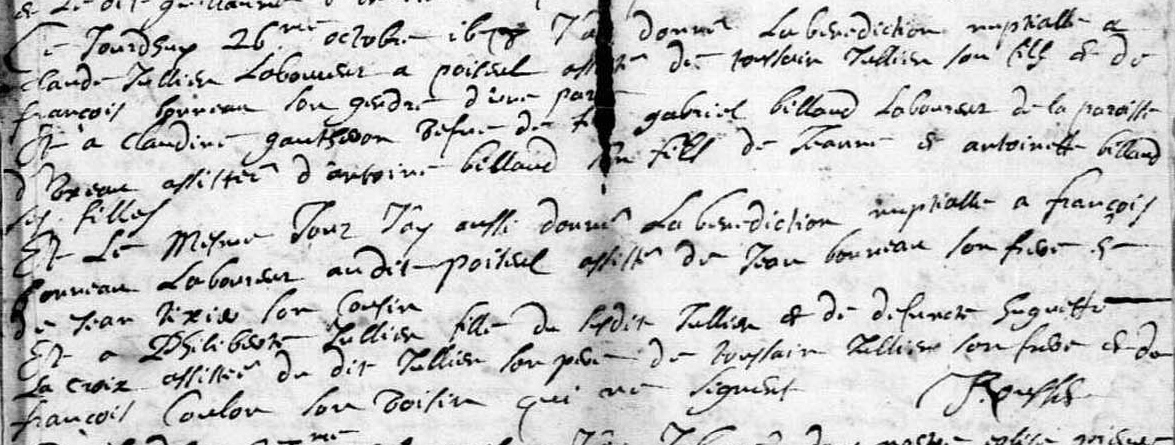 Ce Jourdhuy 26me octobre J'ay donné La benediction nuptialle a
claude Tullier Laboureur a poiseul assisté de toussain Tullier son fils & de
françois bonneau son gendre d'une part
Et a claudine gautheron vefve de feu gabriel billaud Laboureur de la paroisse
assistée d'antoine billaud son fils de Jeanne & antoinette billaud
ses filles
Et Le mesme Jour J'ay aussi donné La benediction nuptialle a françois
bonneau Laboureur audit poiseul assisté de Jean bonneau son frere &
de Jean tixier son Cousin
Et a Philiberte Tullier fille du susdit Tullier & de defuncte huguette
La croix assistée du dit Tullier son pere de toussain Tullier son frere & de
françois Coulon son voisin qui ne signent